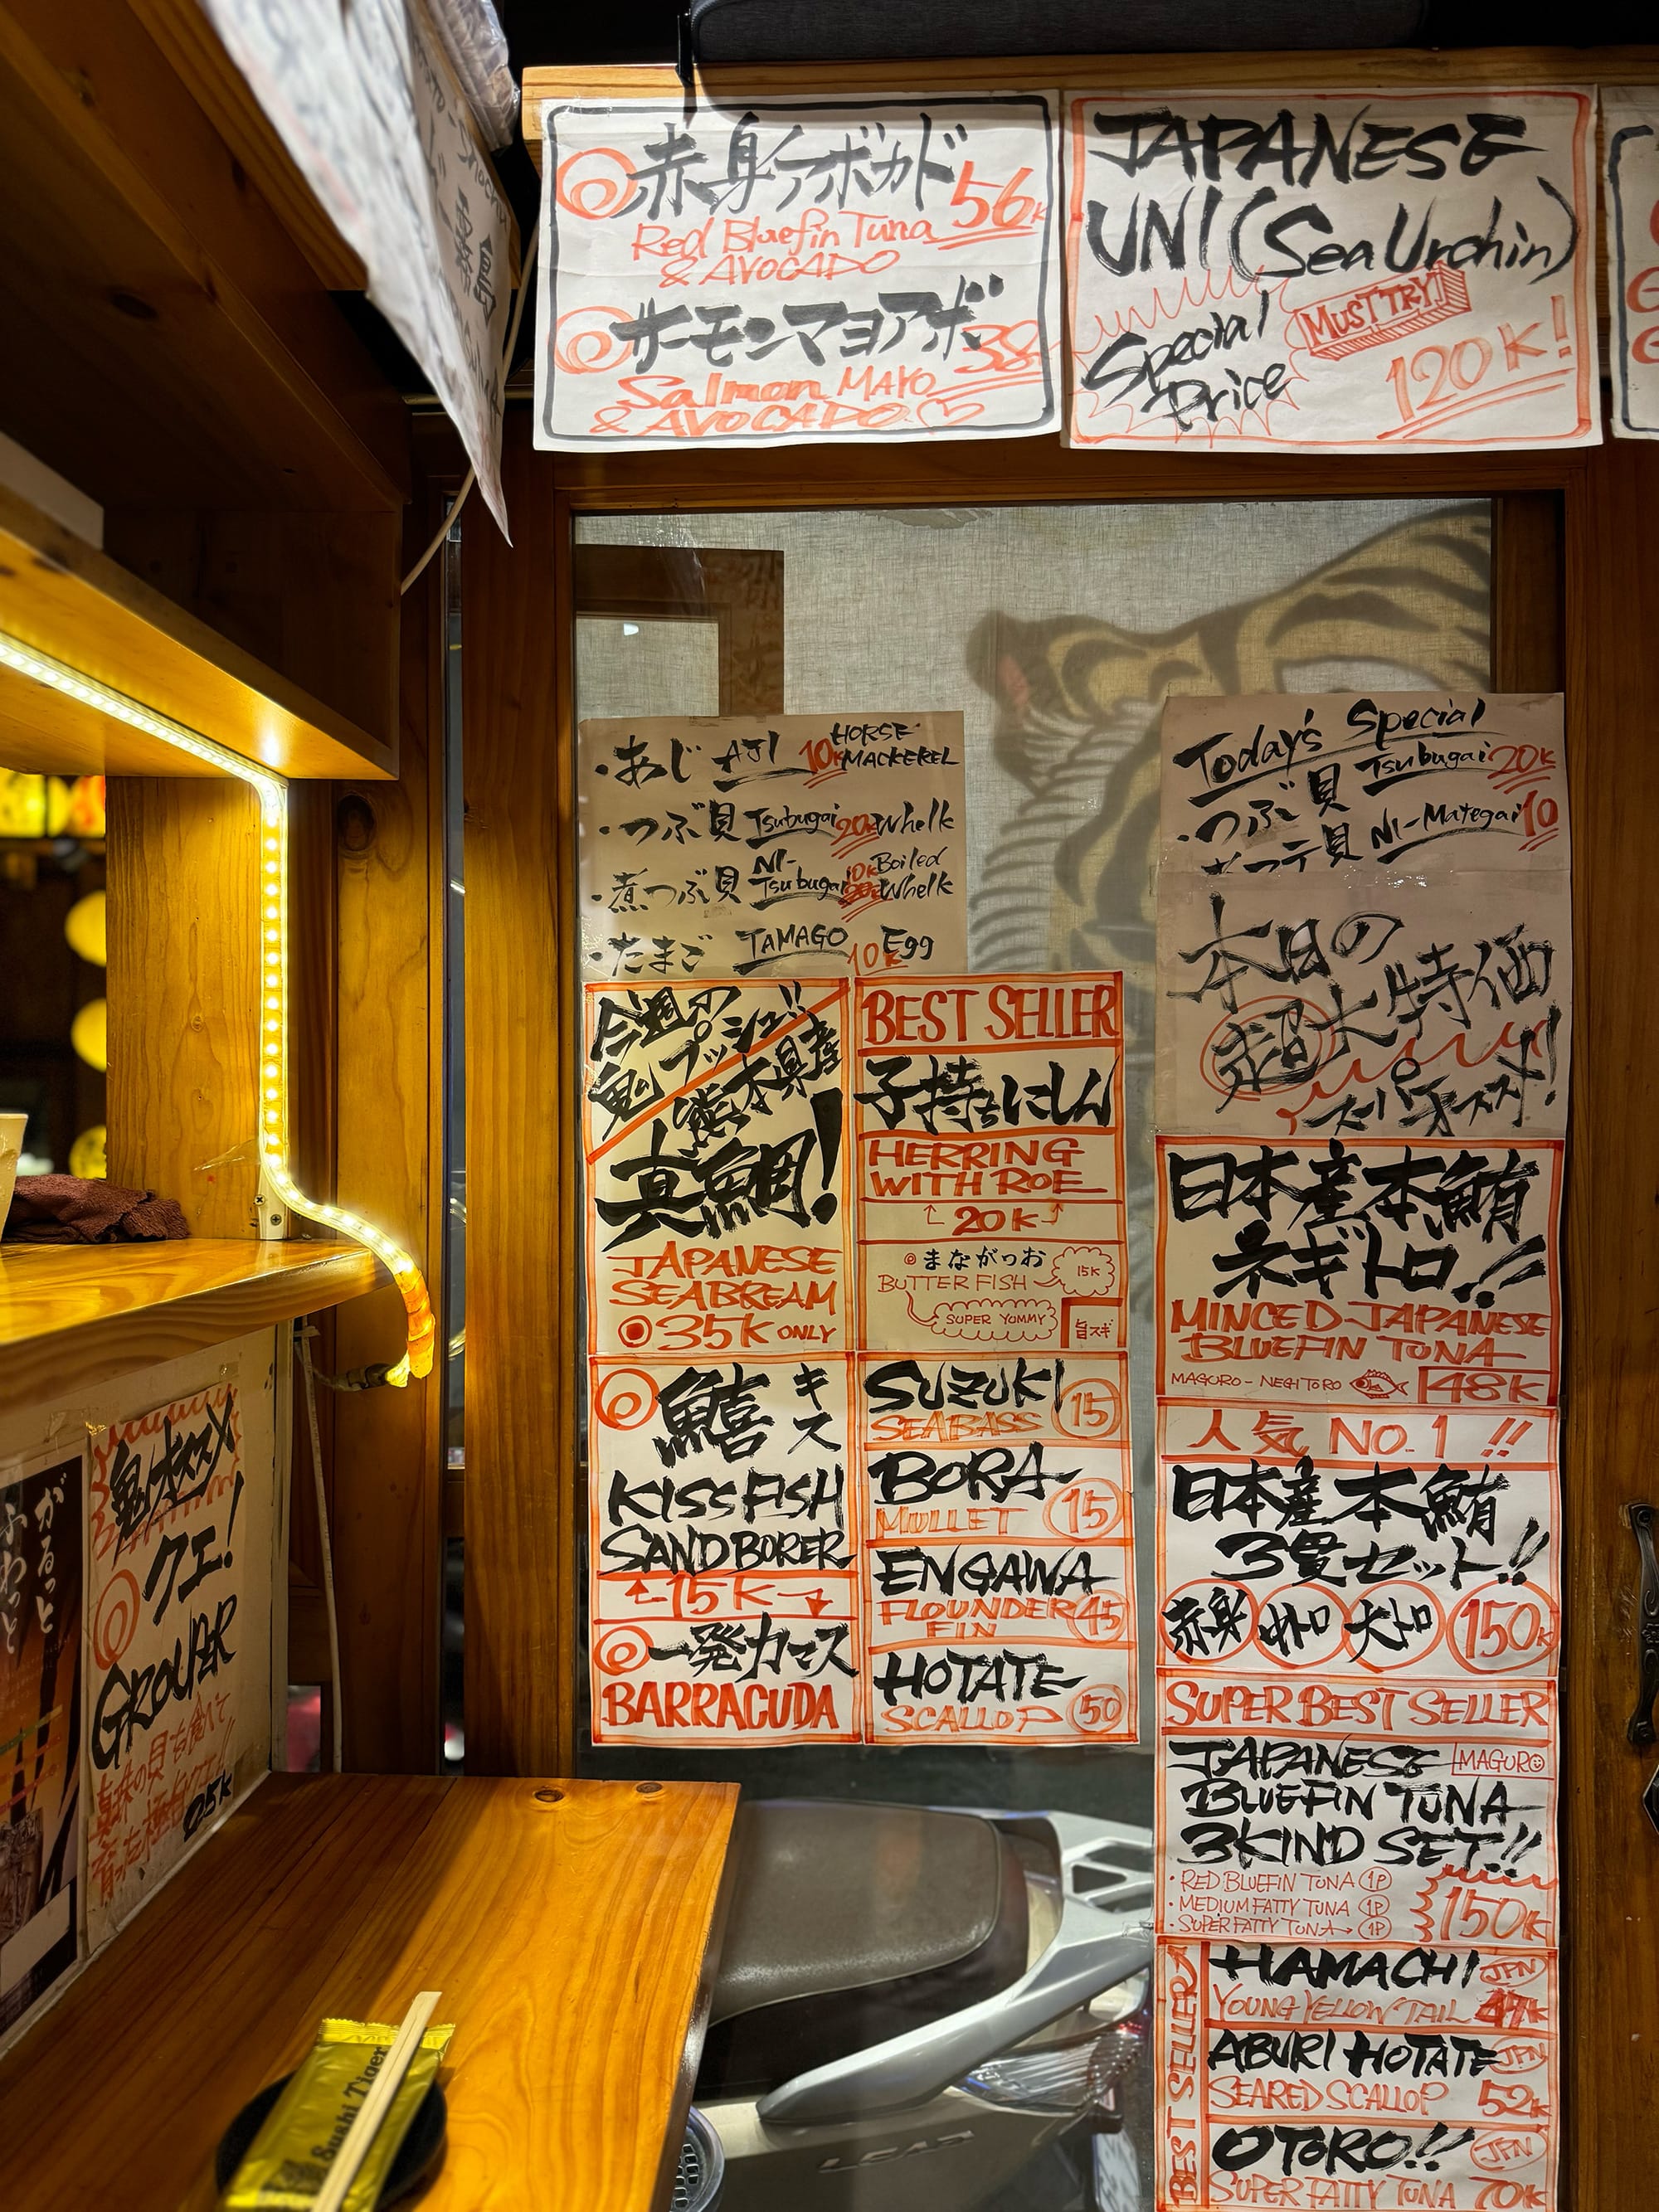 赤身アボカド
Red Bluefin Tuna 56K
& AVOCADO
サーモンマヨアボ
Salmon MAYO 38
& AVOCADO
JAPANESE
UNI (Sea Urchin)
Special
Price
MUST TRY
120K!
・あじ AJI 10K HORSE MACKEREL
・つぶ貝 Tsubugai 20K Whelk
・煮つぶ貝 NI-Tsubugai 10K Boiled Whelk
・たまご TAMAGO 10K Egg
Today's Special
・つぶ貝 Tsubugai 20K
NI-Mategai 10
本日の
超大特価
スーパーオススメ!
今週の
鬼プッシュ!!
熊本県産
真鯛!
JAPANESE
SEABREAM
35K ONLY
BEST SELLER
子持ちにしん
HERRING
WITH ROE
20K
まながつお
BUTTER FISH 15K
SUPER YUMMY
旨スギ
鱚 キス
KISS FISH
SANDBORER
15K
一発カマス
BARRACUDA
SUZUKI
SEABASS 15
BORA
MULLET 15
ENGAWA
FLOUNDER 45
FIN
HOTATE
SCALLOP 50
日本産本鮪
ネギトロ!!
MINCED JAPANESE
BLUEFIN TUNA
MAGURO-NEGITORO 48K
人気 NO.1 !!
日本産本鮪
3貫セット!!
赤身 中トロ 大トロ 150K
SUPER BEST SELLER
JAPANESE MAGURO
BLUEFIN TUNA
3KIND SET!!
・RED BLUEFIN TUNA 1P
・MEDIUM FATTY TUNA 1P
・SUPER FATTY TUNA 1P
150K
BEST SELLER
HAMACHI JPN
YOUNG YELLOW TAIL 47K
ABURI HOTATE JPN
SEARED SCALLOP 52K
OTORO!! JPN
SUPER FATTY TUNA 70K
鬼オススメ
クエ!
GROUPER
がるっと
ふわっと
Sushi Tiger
LEAD